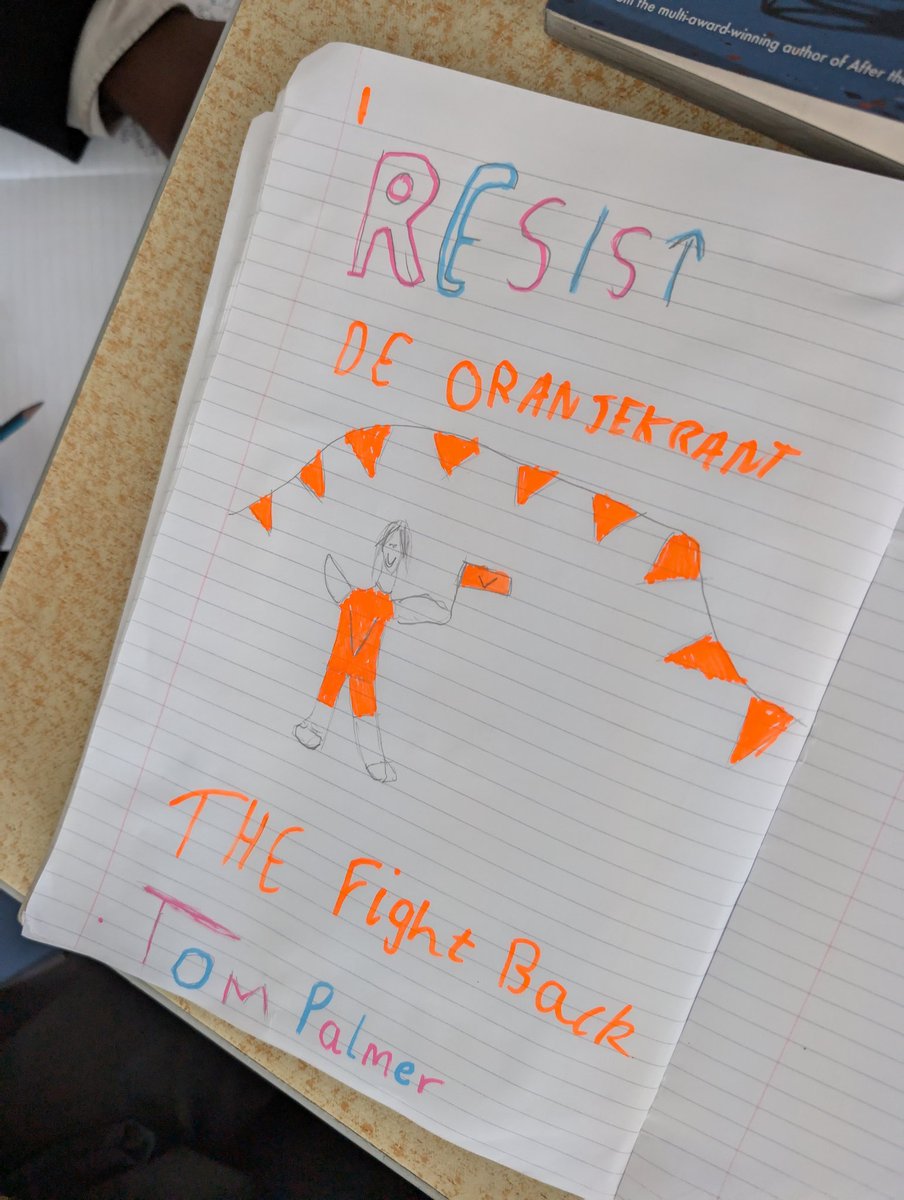 om the multi-award-winning author of After the
RESIST
DE ORANJEKRANT
V
V
THE Fight Back
Tom Palmer